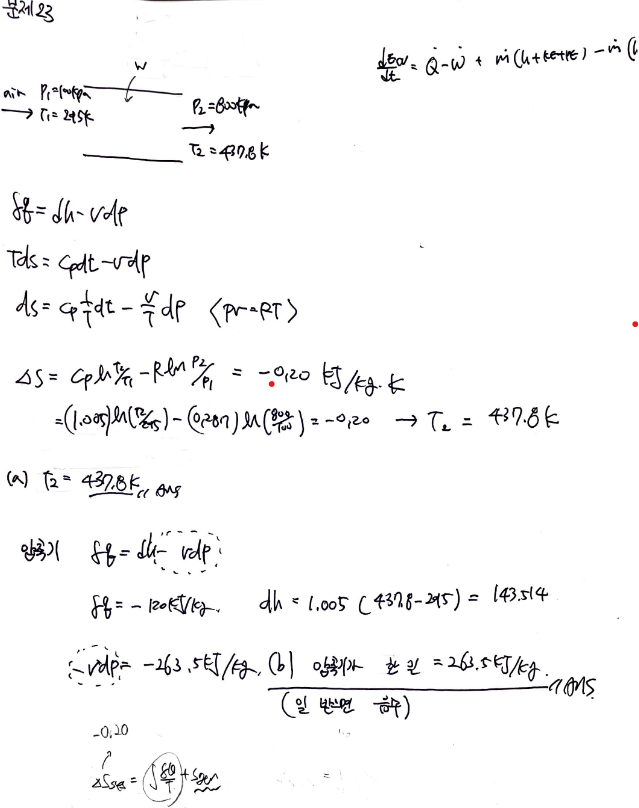 문제23
W
air P₁=100kpa
→ T₁=295K
P₂=800kpa
→
T₂=437.8K
dEcv/dt = Q̇-Ẇ + ṁ(h+ke+pe) - ṁ(h
δq = dh-vdp
Tds = Cpdt-vdp
ds = Cp 1/T dt - v/T dp 〈pv=RT〉
ΔS = Cp ln T₂/T₁ - R ln P₂/P₁ = -0.20 kJ/kg·K
=(1.005) ln(T₂/295) - (0.287) ln(800/100) = -0.20 → T₂ = 437.8K
(a) T₂ = 437.8K,, Ans
압축기 δq = dh- vdp
δq = -120kJ/kg. dh = 1.005 (437.8-295) = 143.514
-vdp = -263.5kJ/kg, (b) 압축기가 한 일 = 263.5kJ/kg.,, Ans.
(일 받으면 음수)
-0.20
ΔSsys = ∫δQ/T + Sgen